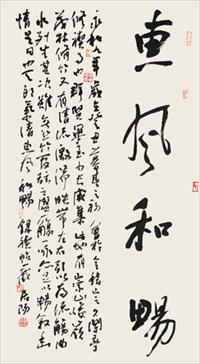 惠风和暢
永和九年歲在癸丑暮春之初會於會稽山陰之蘭亭
脩禊事也群賢畢至少長咸集此地有崇山峻嶺
茂林脩竹又有清流激湍映帶左右引以為流觴曲
水列坐其次雖無絲竹管弦之盛一觴一詠亦足以暢敘幽
情是日也天朗氣清惠风和暢